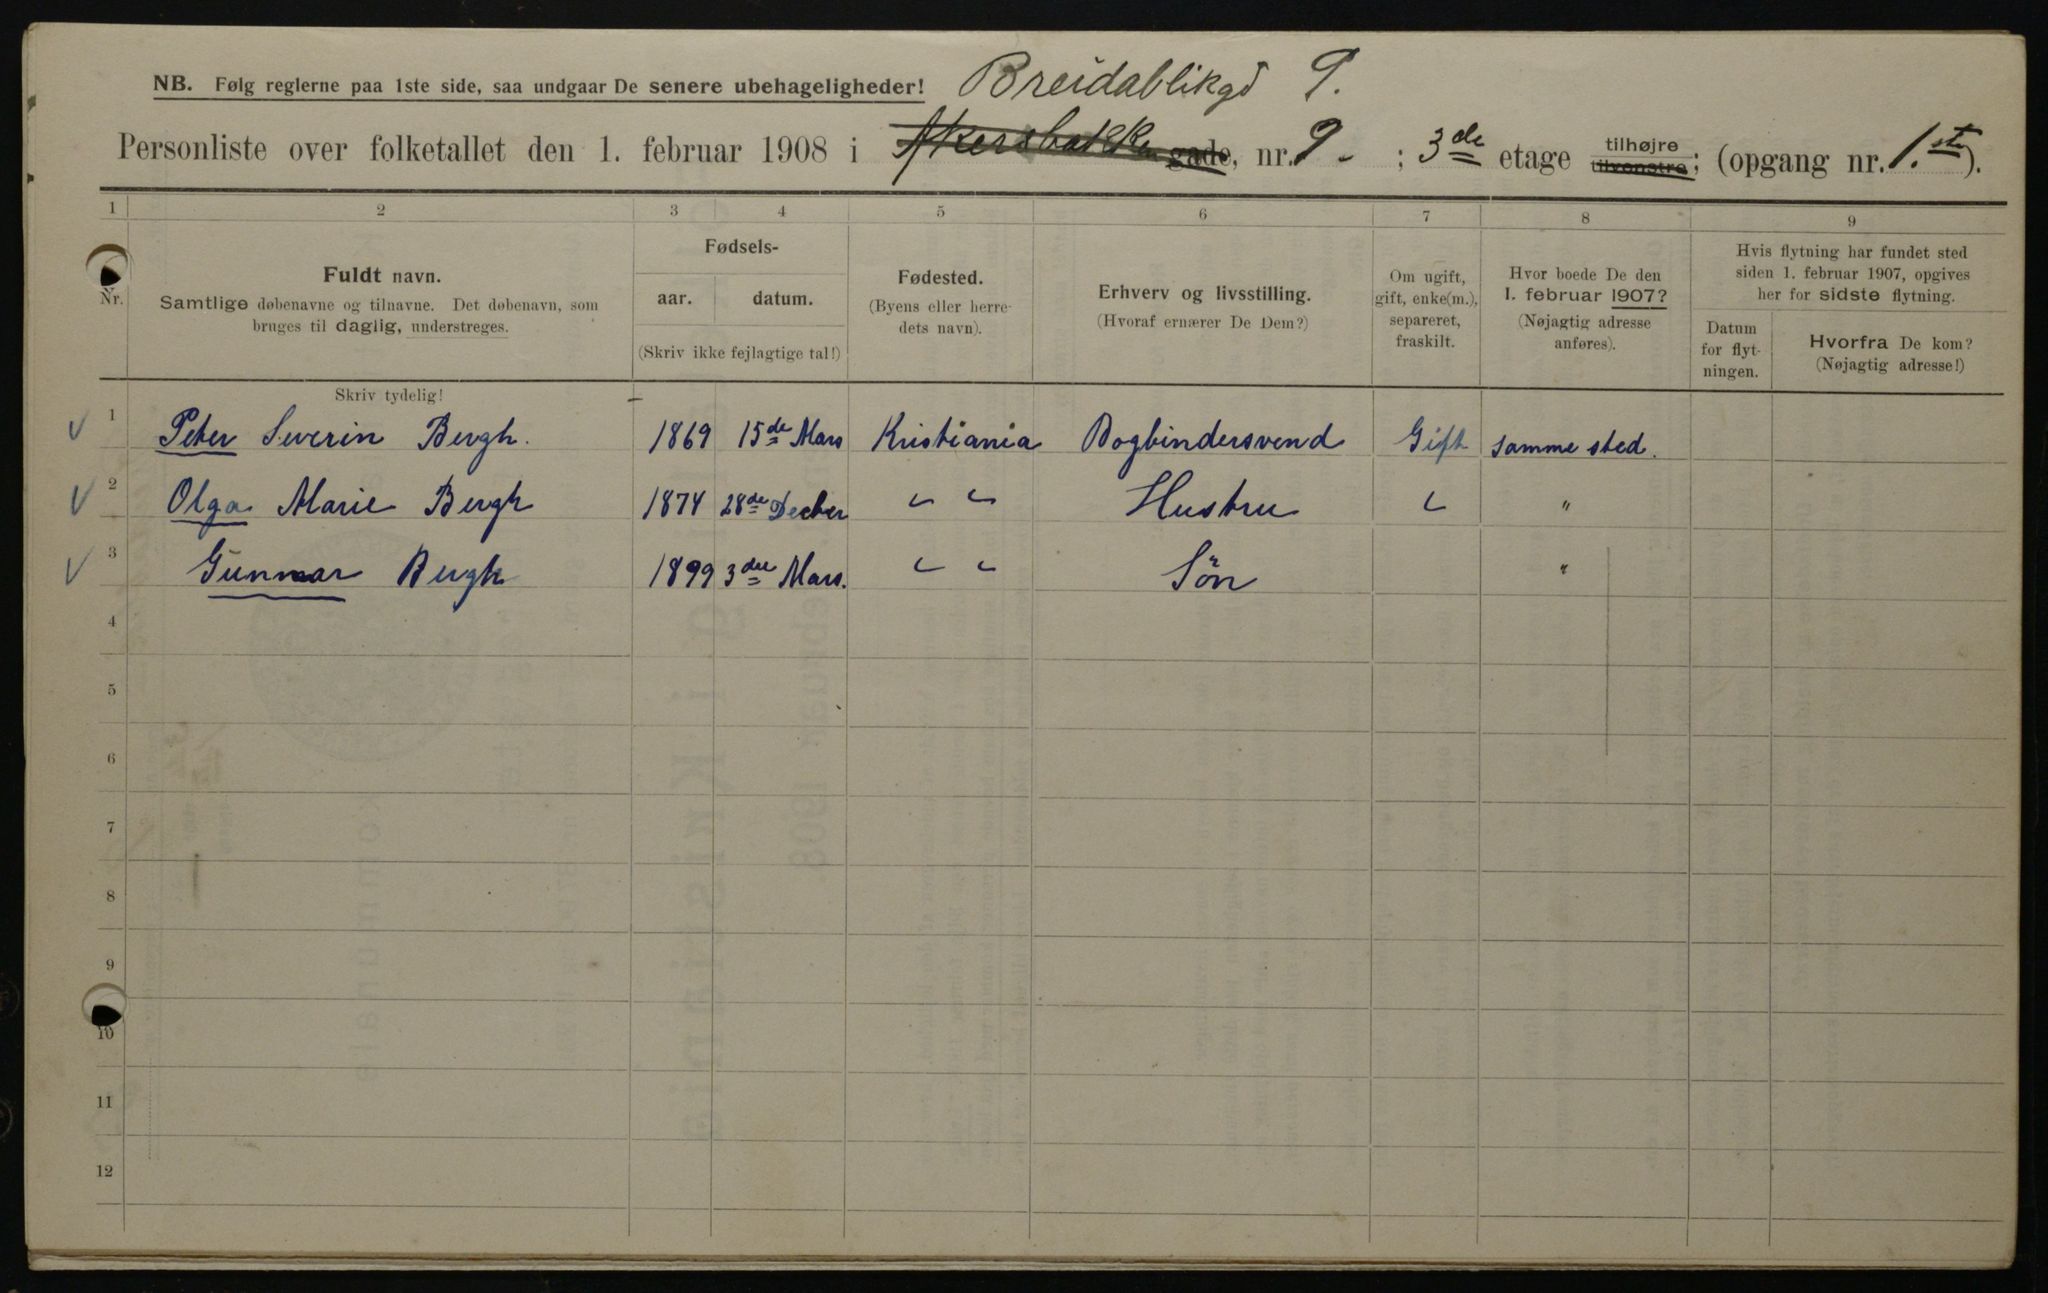 NB. Følg reglerne paa 1ste side, saa undgaar De senere ubehageligheder! Breidablikgd 9.
Personliste over folketallet den 1. februar 1908 i Akersbakken gade, nr. 9 - ; 3de etage tilhøjre tilvenstre; (opgang nr. 1.ste).
1 2 3 4 5 6 7 8 9
Nr.
Fuldt navn.
Samtlige døbenavne og tilnavne. Det døbenavn, som
bruges til daglig, understreges.
Fødsels-
aar. datum.
(Skriv ikke fejlagtige tal!)
Fødested.
(Byens eller herre-
dets navn).
Erhverv og livsstilling.
(Hvoraf ernærer De Dem?)
Om ugift,
gift, enke(m.),
separeret,
fraskilt.
Hvor boede De den
1. februar 1907?
(Nøjagtig adresse
anføres).
Hvis flytning har fundet sted
siden 1. februar 1907, opgives
her for sidste flytning.
Datum
for flyt-
ningen.
Hvorfra De kom?
(Nøjagtig adresse!)
Skriv tydelig!
1 Peter Severin Bergh. 1869 15de Mars Kristiania Bogbindersvend Gift samme sted.
2 Olga Marie Bergh 1874 28de Decber " " Hustru " "
3 Gunnar Bergh 1899 3die Mars. " " Søn "
4
5
6
7
8
9
10
11
12